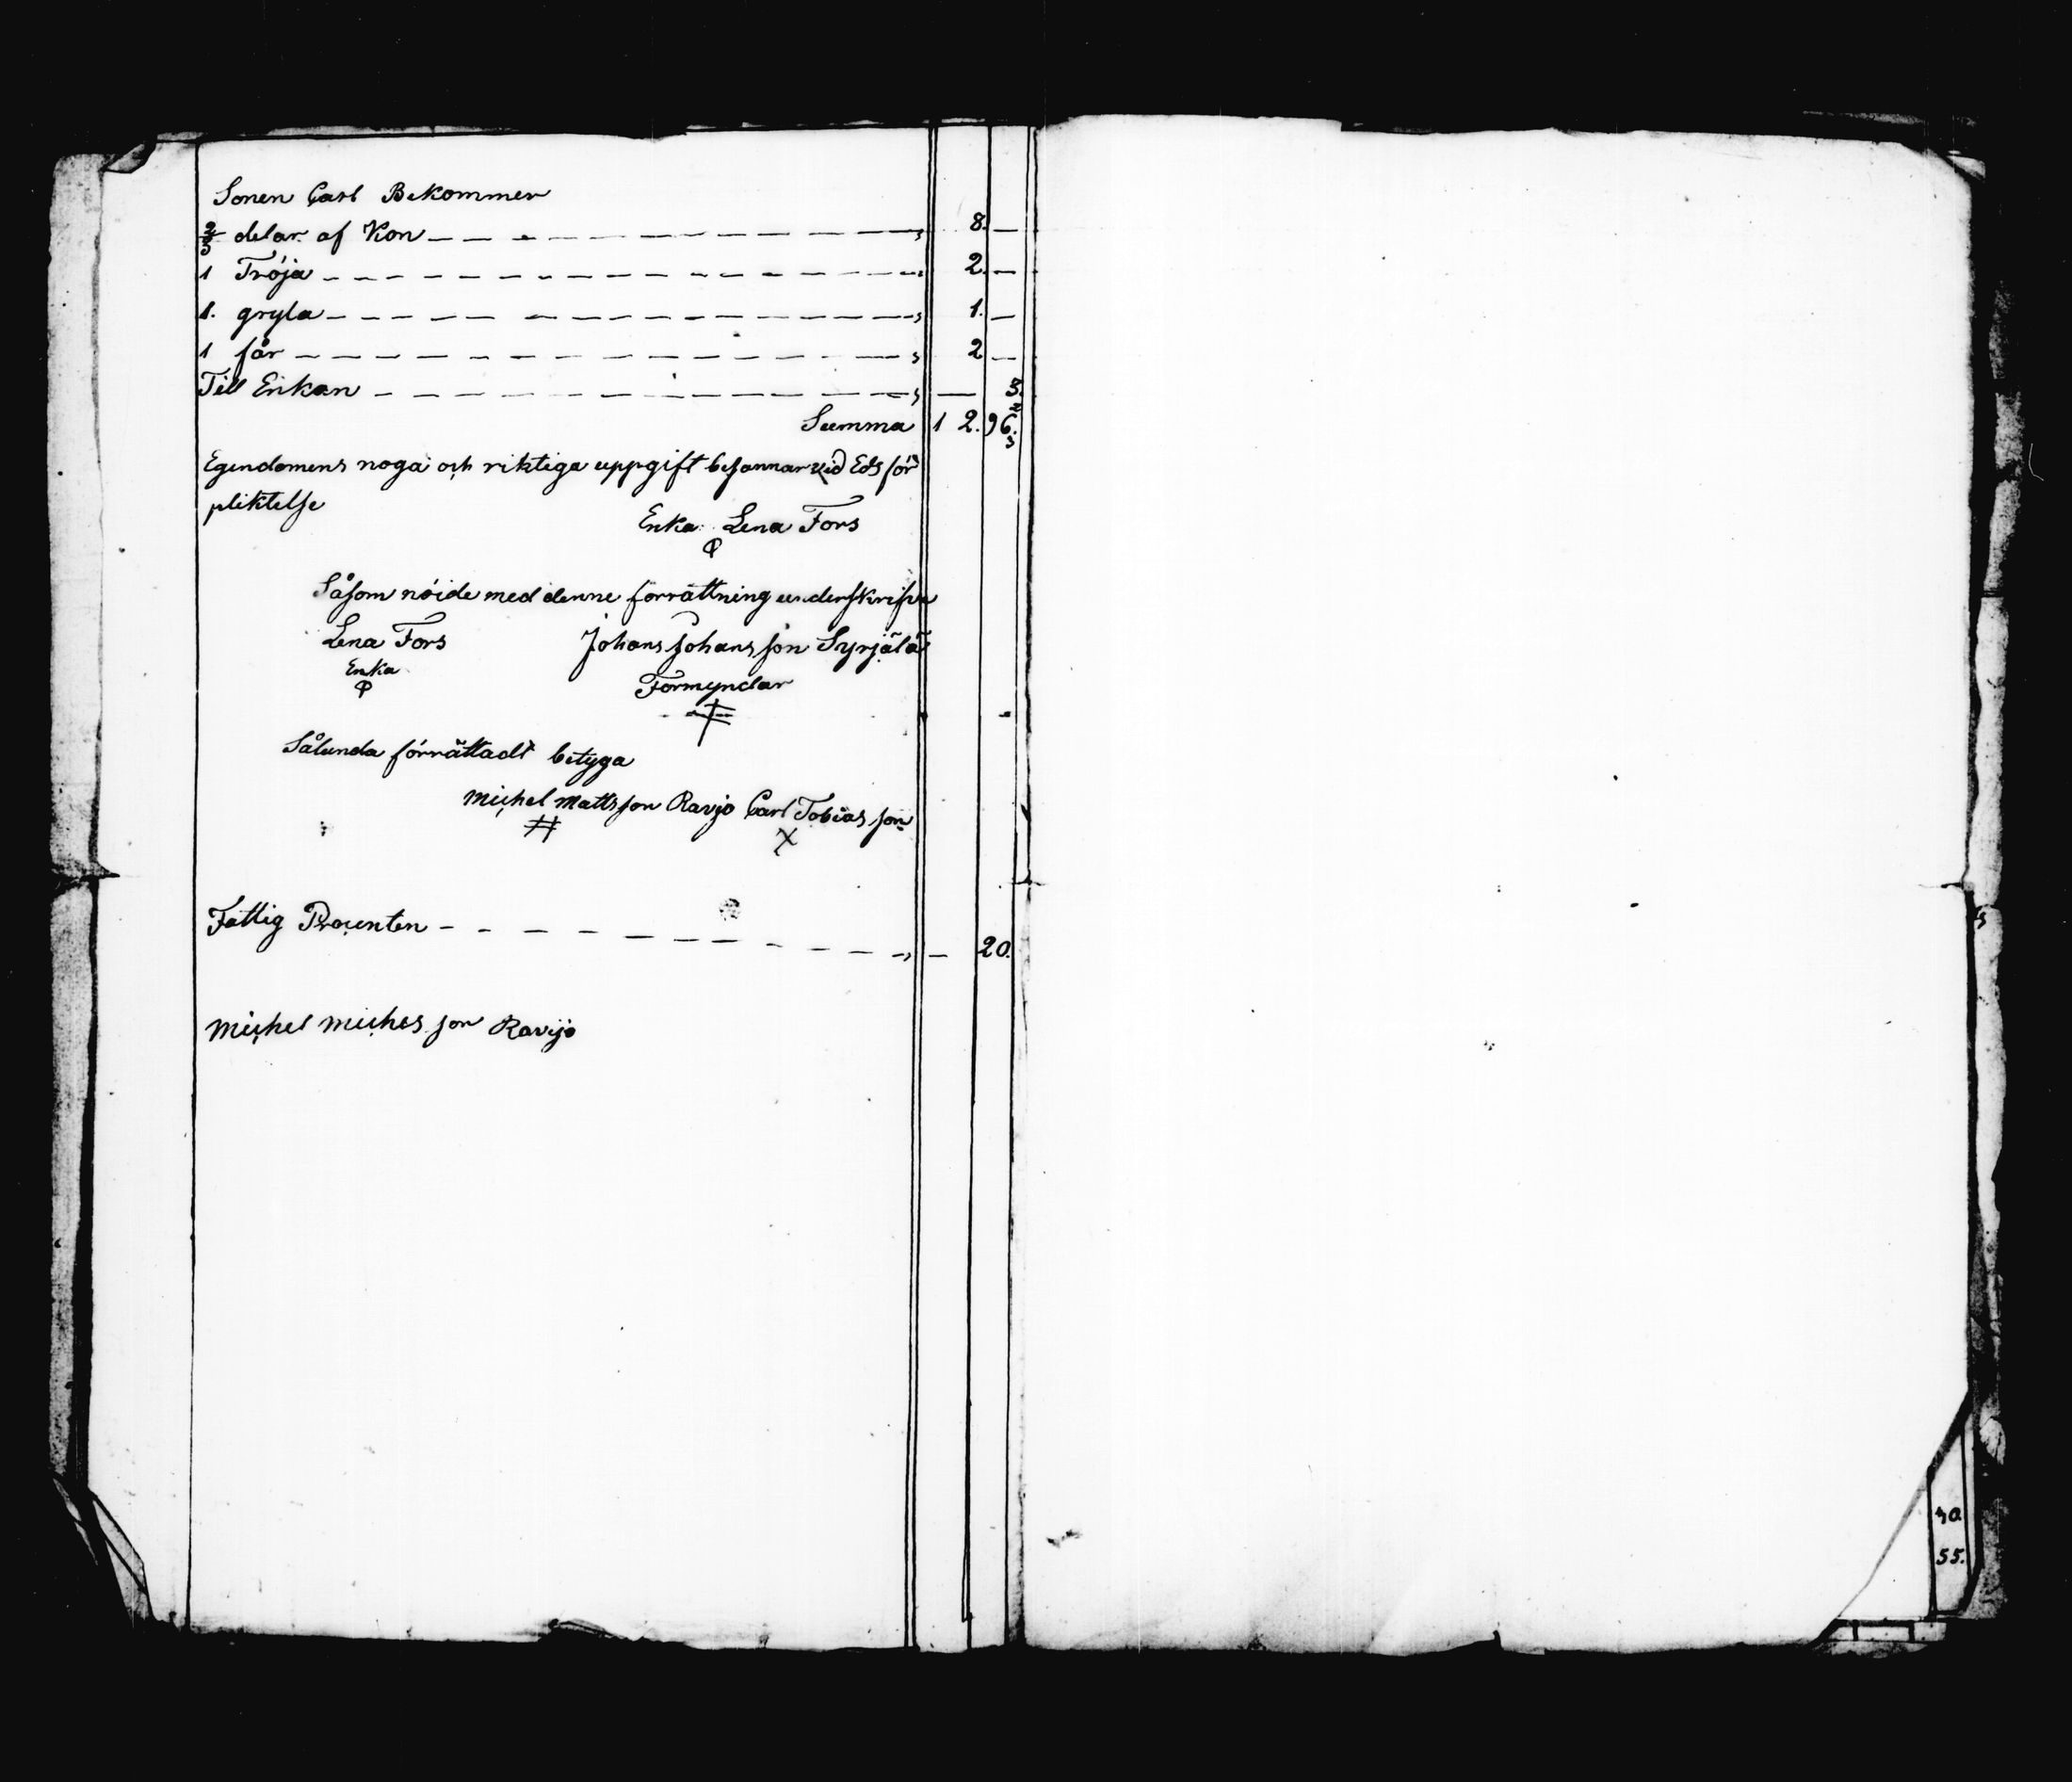 Sonen Carl Bekommer
2/3 delar af Kon — — — — — — — — 8. —
1 Tröja — — — — — — — — 2. —
1. gryta — — — — — — — — 1. —
1 får — — — — — — — — 2 —
Till Enkan — — — — — — — — — 3.
Summa 12. 96. 2/3
Egendomens noga och riktiga uppgift besannar vid Eds för
pliktelse
Enka Lena Fors
Såsom nöide med denne förrättning underskrifva
Lena Fors Johans Johansson Syrjälä
Enka Förmyndar
Sålunda förrättadt betyga
Michel Mattsson Ravjo Carl Tobiasson
Fattig Procenten — — — — — — — — — 20.
Michel Michelsson Ravijo
40
55.